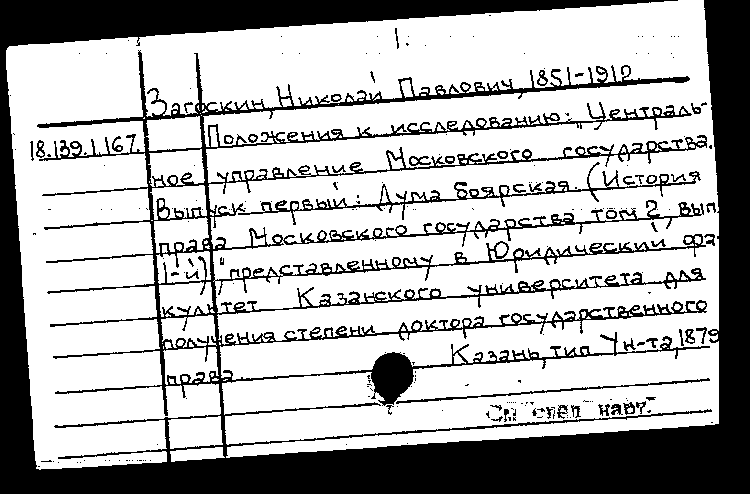 1.
Загоскин, Николай Павлович, 1851-1912.
18.139.1.167. Положения к исследованию: "Централь-
ное управление Московского государства.
Выпуск первый: Дума боярская. (История
права Московского государства, том 2, вып.
1-й)", представленному в Юридический фа-
культет Казанского университета для
получения степени доктора государственного
права. Казань, тип. Ун-та, 1879
См след карт.